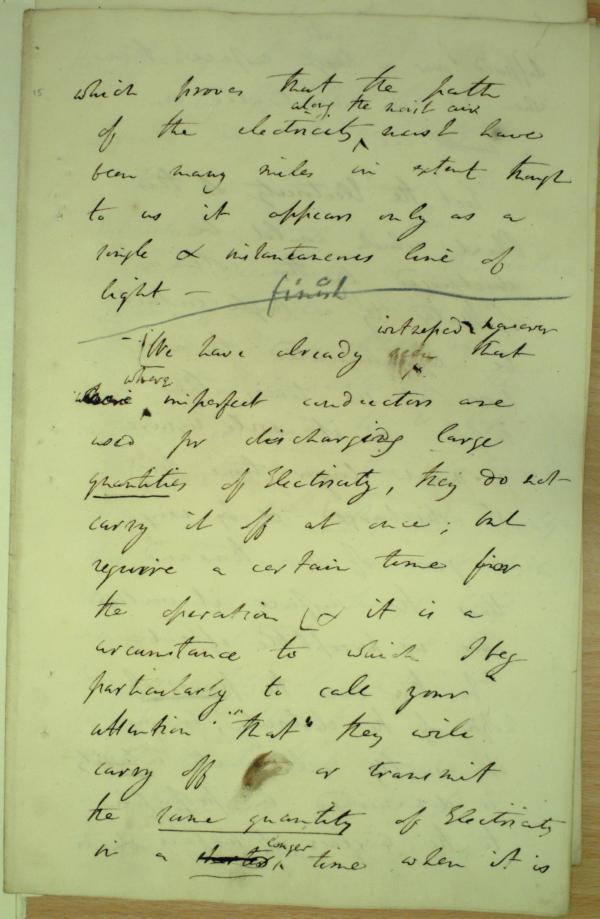 15
which proves that the path
along the moist air
of the electricity must have
been many miles in extent though
to us it appears only as a
single & instantaneous line of
light — finish
witnessed however
We have already that
where
imperfect conductors are
used for discharging large
quantities of Electricity, they do not
carry it off at once; but
require a certain time for
the operation & it is a
circumstance to which I beg
particularly to call your
attention "that" they will
carry off or transmit
the same quantity of Electricity
longer
in a shorter time when it is